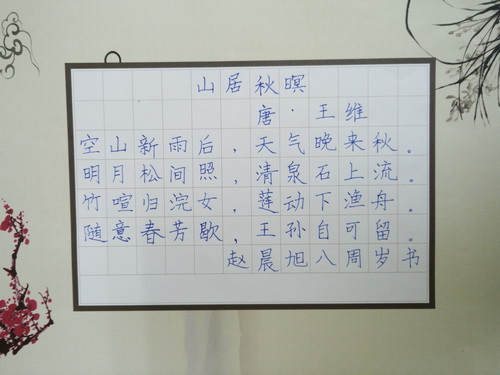 山居秋暝
唐·王维
空山新雨后，天气晚来秋。
明月松间照，清泉石上流。
竹喧归浣女，莲动下渔舟。
随意春芳歇，王孙自可留。
赵晨旭八周岁书